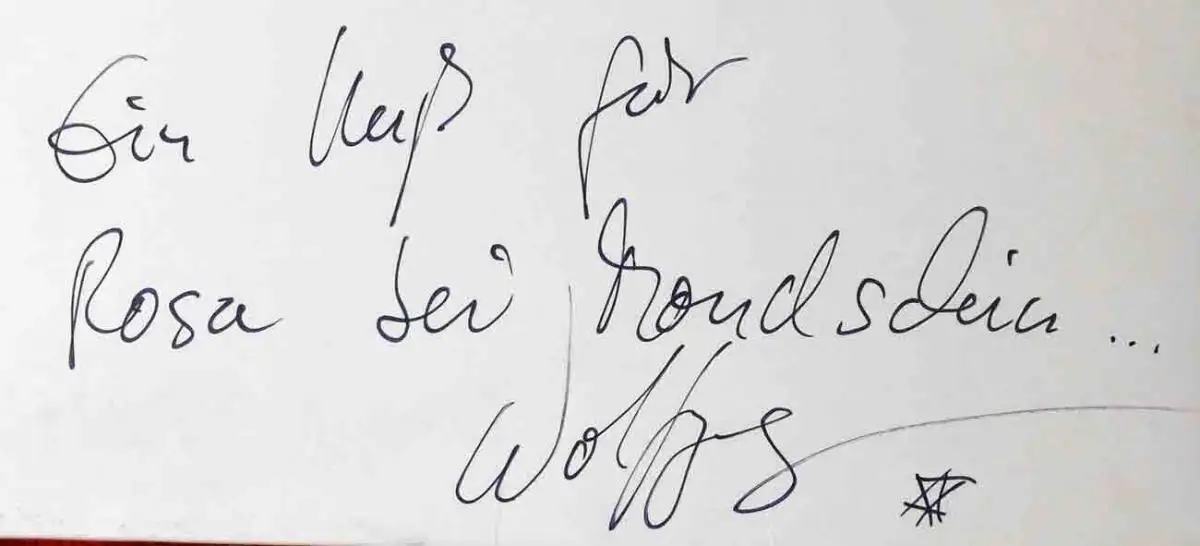 Ein Kuß für
Rosa bei Mondschein...
Wolfgang